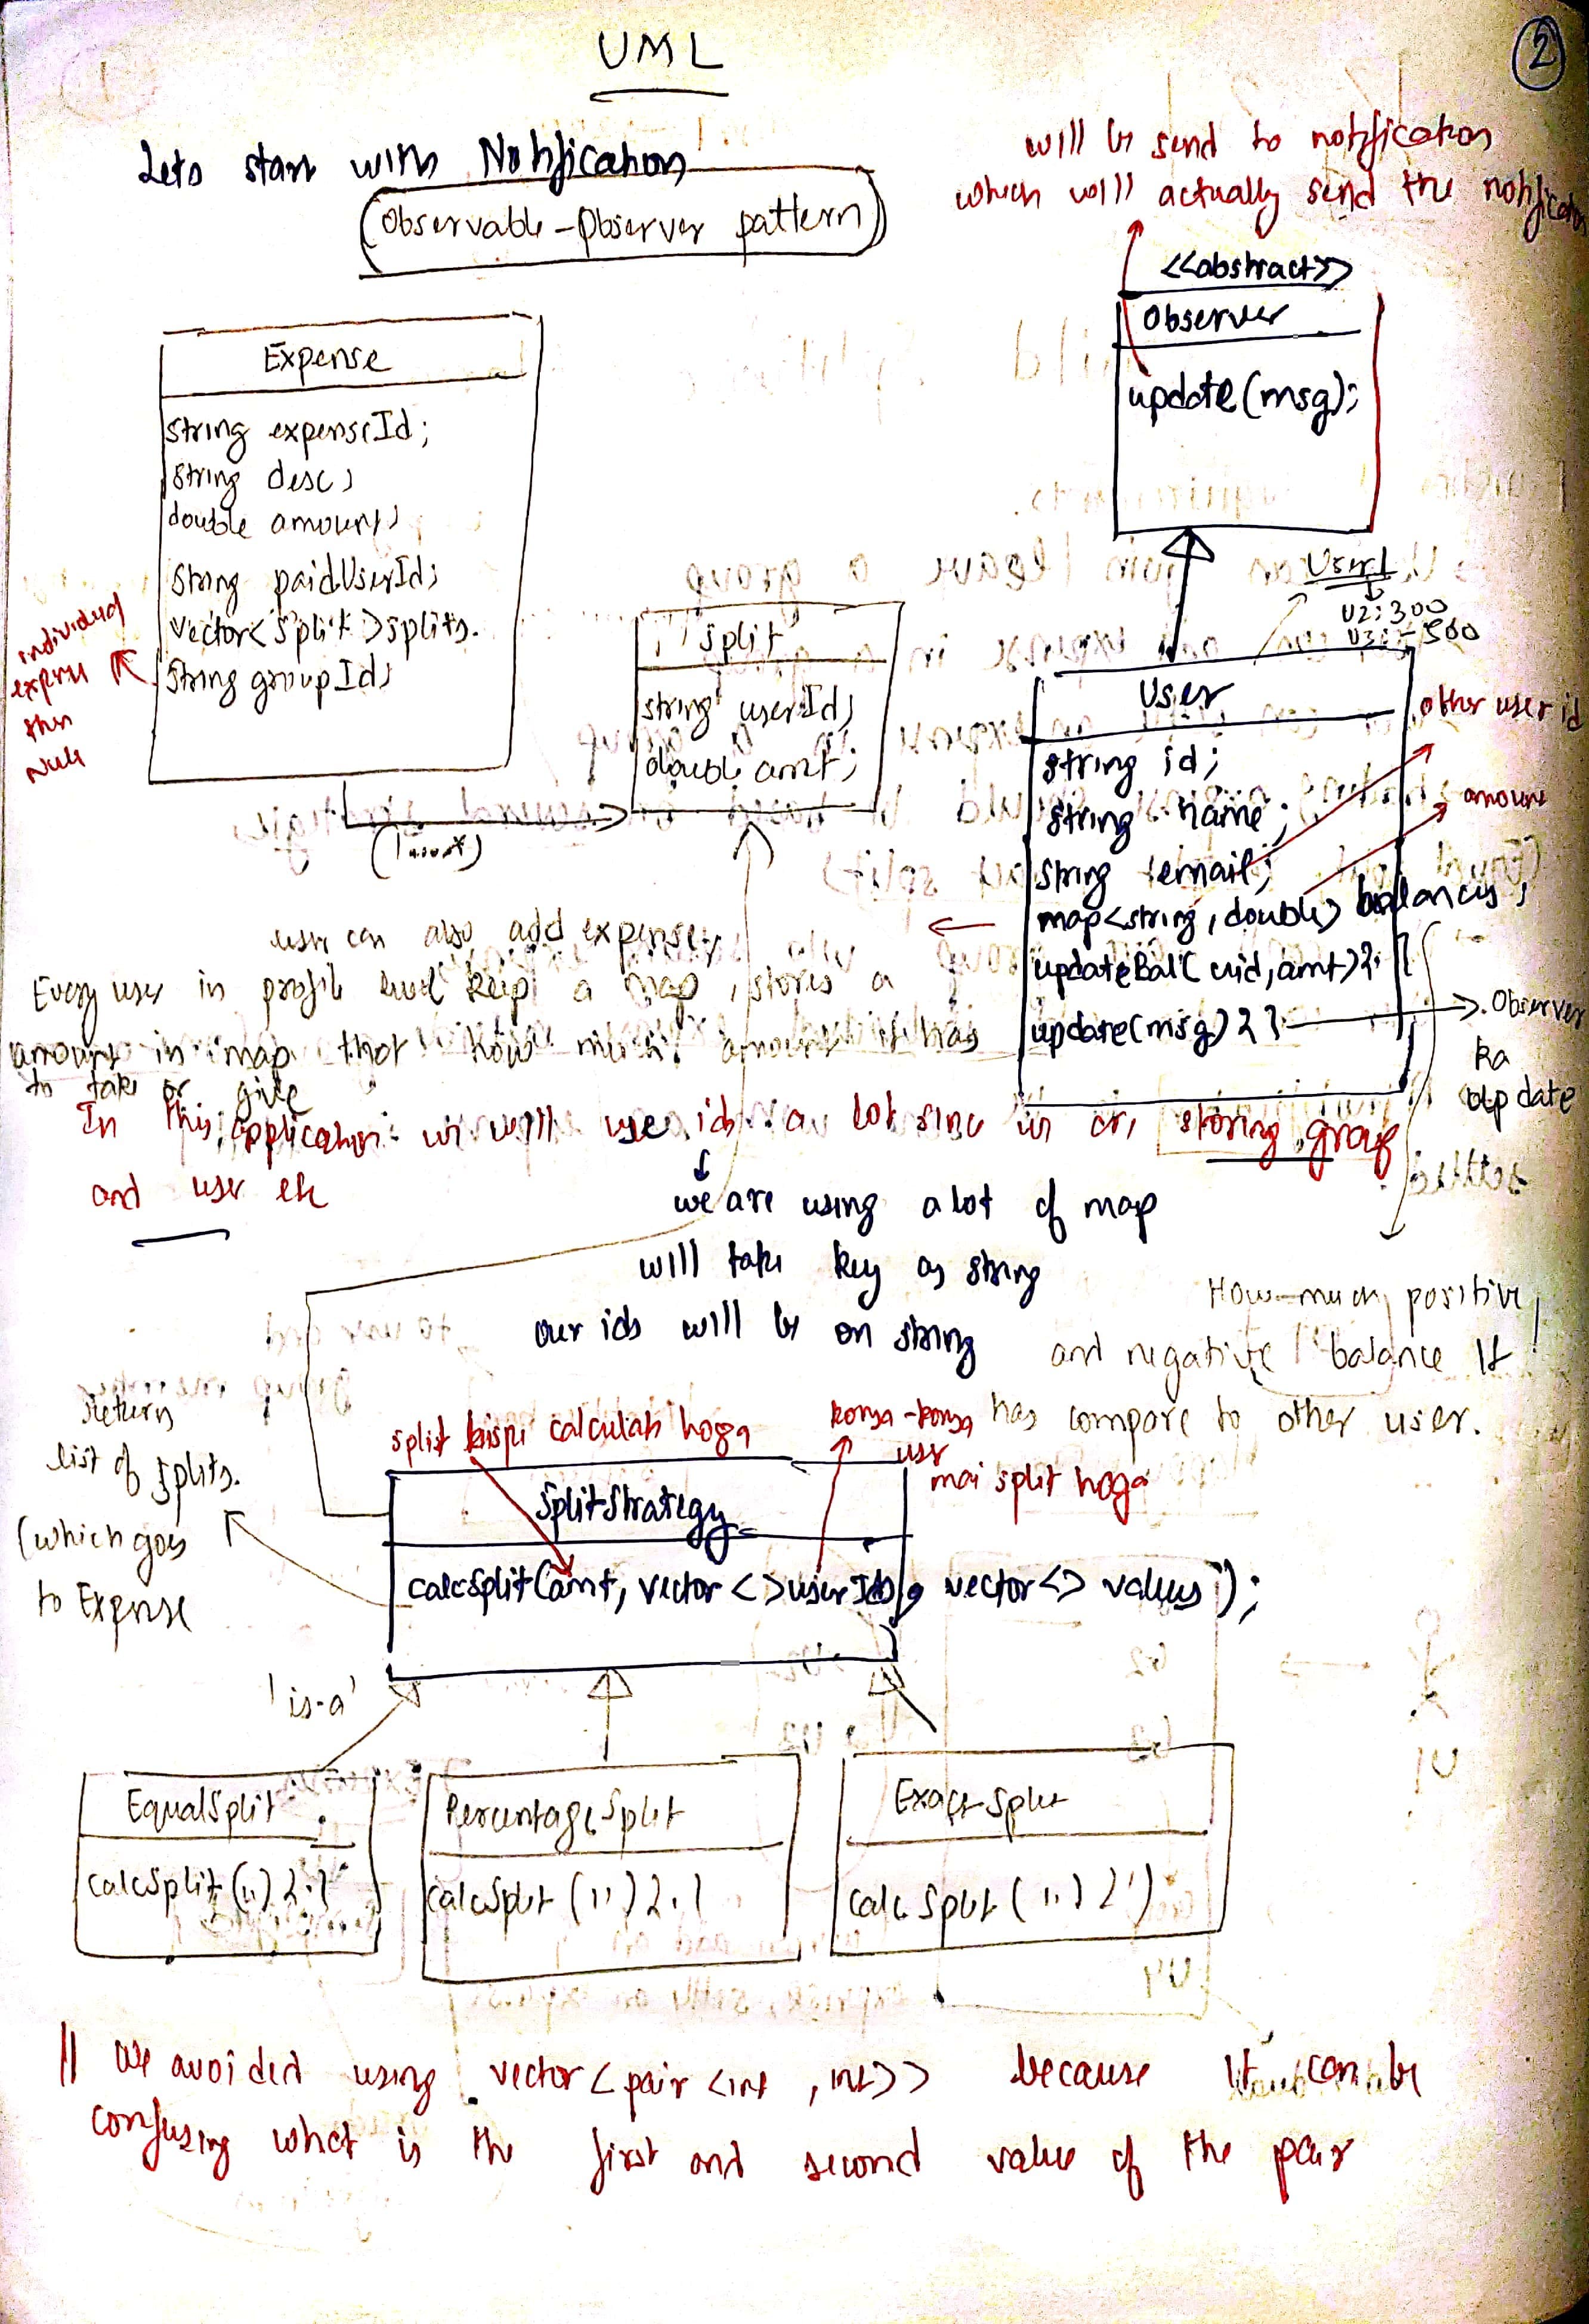 UML
2
Lets start with Notification
(Observable-Observer pattern)
will be send to notification
which will actually send the notification
<<abstract>>
Observer
update(msg);
Expense
string expenseId;
string desc;
double amount;
string paidUserId;
vector<split>splits.
string groupId;
individual
expens
then
Null
split
string userId;
double amt;
User1
U2: 300
U3: - 500
User
string id;
string name;
string email;
map<string, double> balances;
updateBal(uid, amt){}
update(msg) { }
other user id
amount
Observer
ka
update
user can also add expense
Every user in profile will keep a map, stores a
amount in map that how much amount it has
to take or give
In this application we will use ids a lot since we are storing group
and user etc
we are using a lot of map
will take key as string
our ids will be on string
How much positive
and negative balance it
has compare to other user.
return
list of splits.
(which goes
to Expense
split kispe calculate hoga
konsa-konsa
user
mai split hoga
SplitStrategy
calcSplit(amt, vector<>userIds, vector<> values);
'is-a'
EqualSplit
calcSplit(,,) { }
PercentageSplit
calcSplit (,,) { }
ExactSplit
calcSplit (,,) { }
// We avoided using vector<pair<int, int>> because it can be
confusing what is the first and second value of the pair